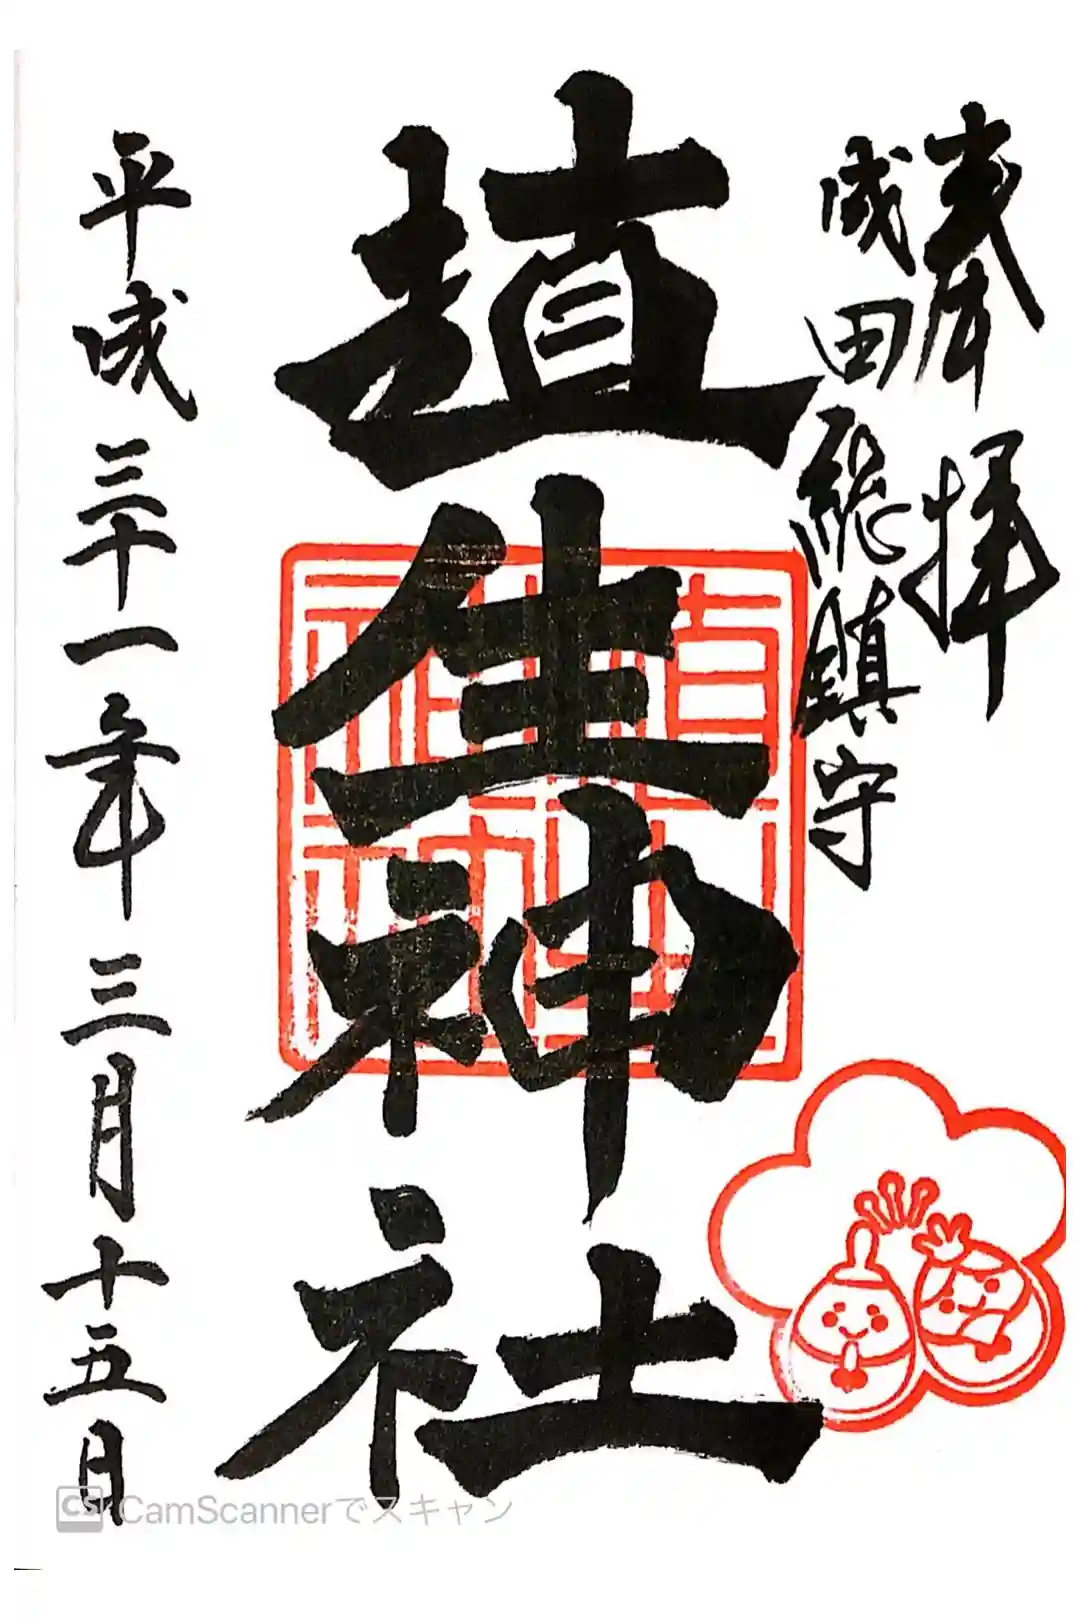 奉拝
成田総鎮守
埴生神社
平成三十一年三月十五日
CS CamScannerでスキャン